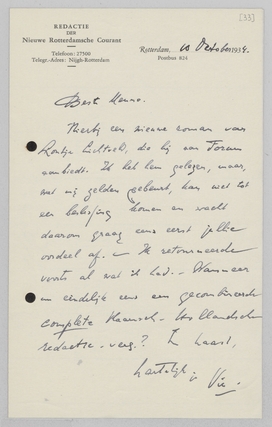 [33]
REDACTIE
DER
Nieuwe Rotterdamsche Courant
Telefoon: 27500
Telegr.-Adres: Nijgh-Rotterdam
Rotterdam, 10 October 1934.
Postbus 824
Beste Menno.
Hierbij een nieuwe roman van
die hij aan Forum
aanbiedt. Ik heb hem gelezen, maar,
wat mij zelden gebeurt, kan niet tot
een beslissing komen en wacht
daarom graag eens eerst jullie
oordeel af. – Ik retourneerde
voorts al wat ik had. – Wanneer
nu eindelijk eens een gecombineerde
complete Vlaamsch-Hollandsche
redactie-verg.? In haast,
hartelijk,
Vic.